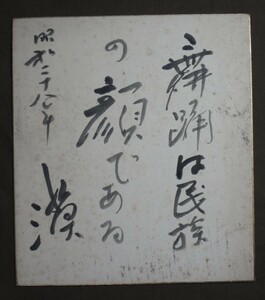 舞踊は民族
の顔である
昭和二十八年
漠